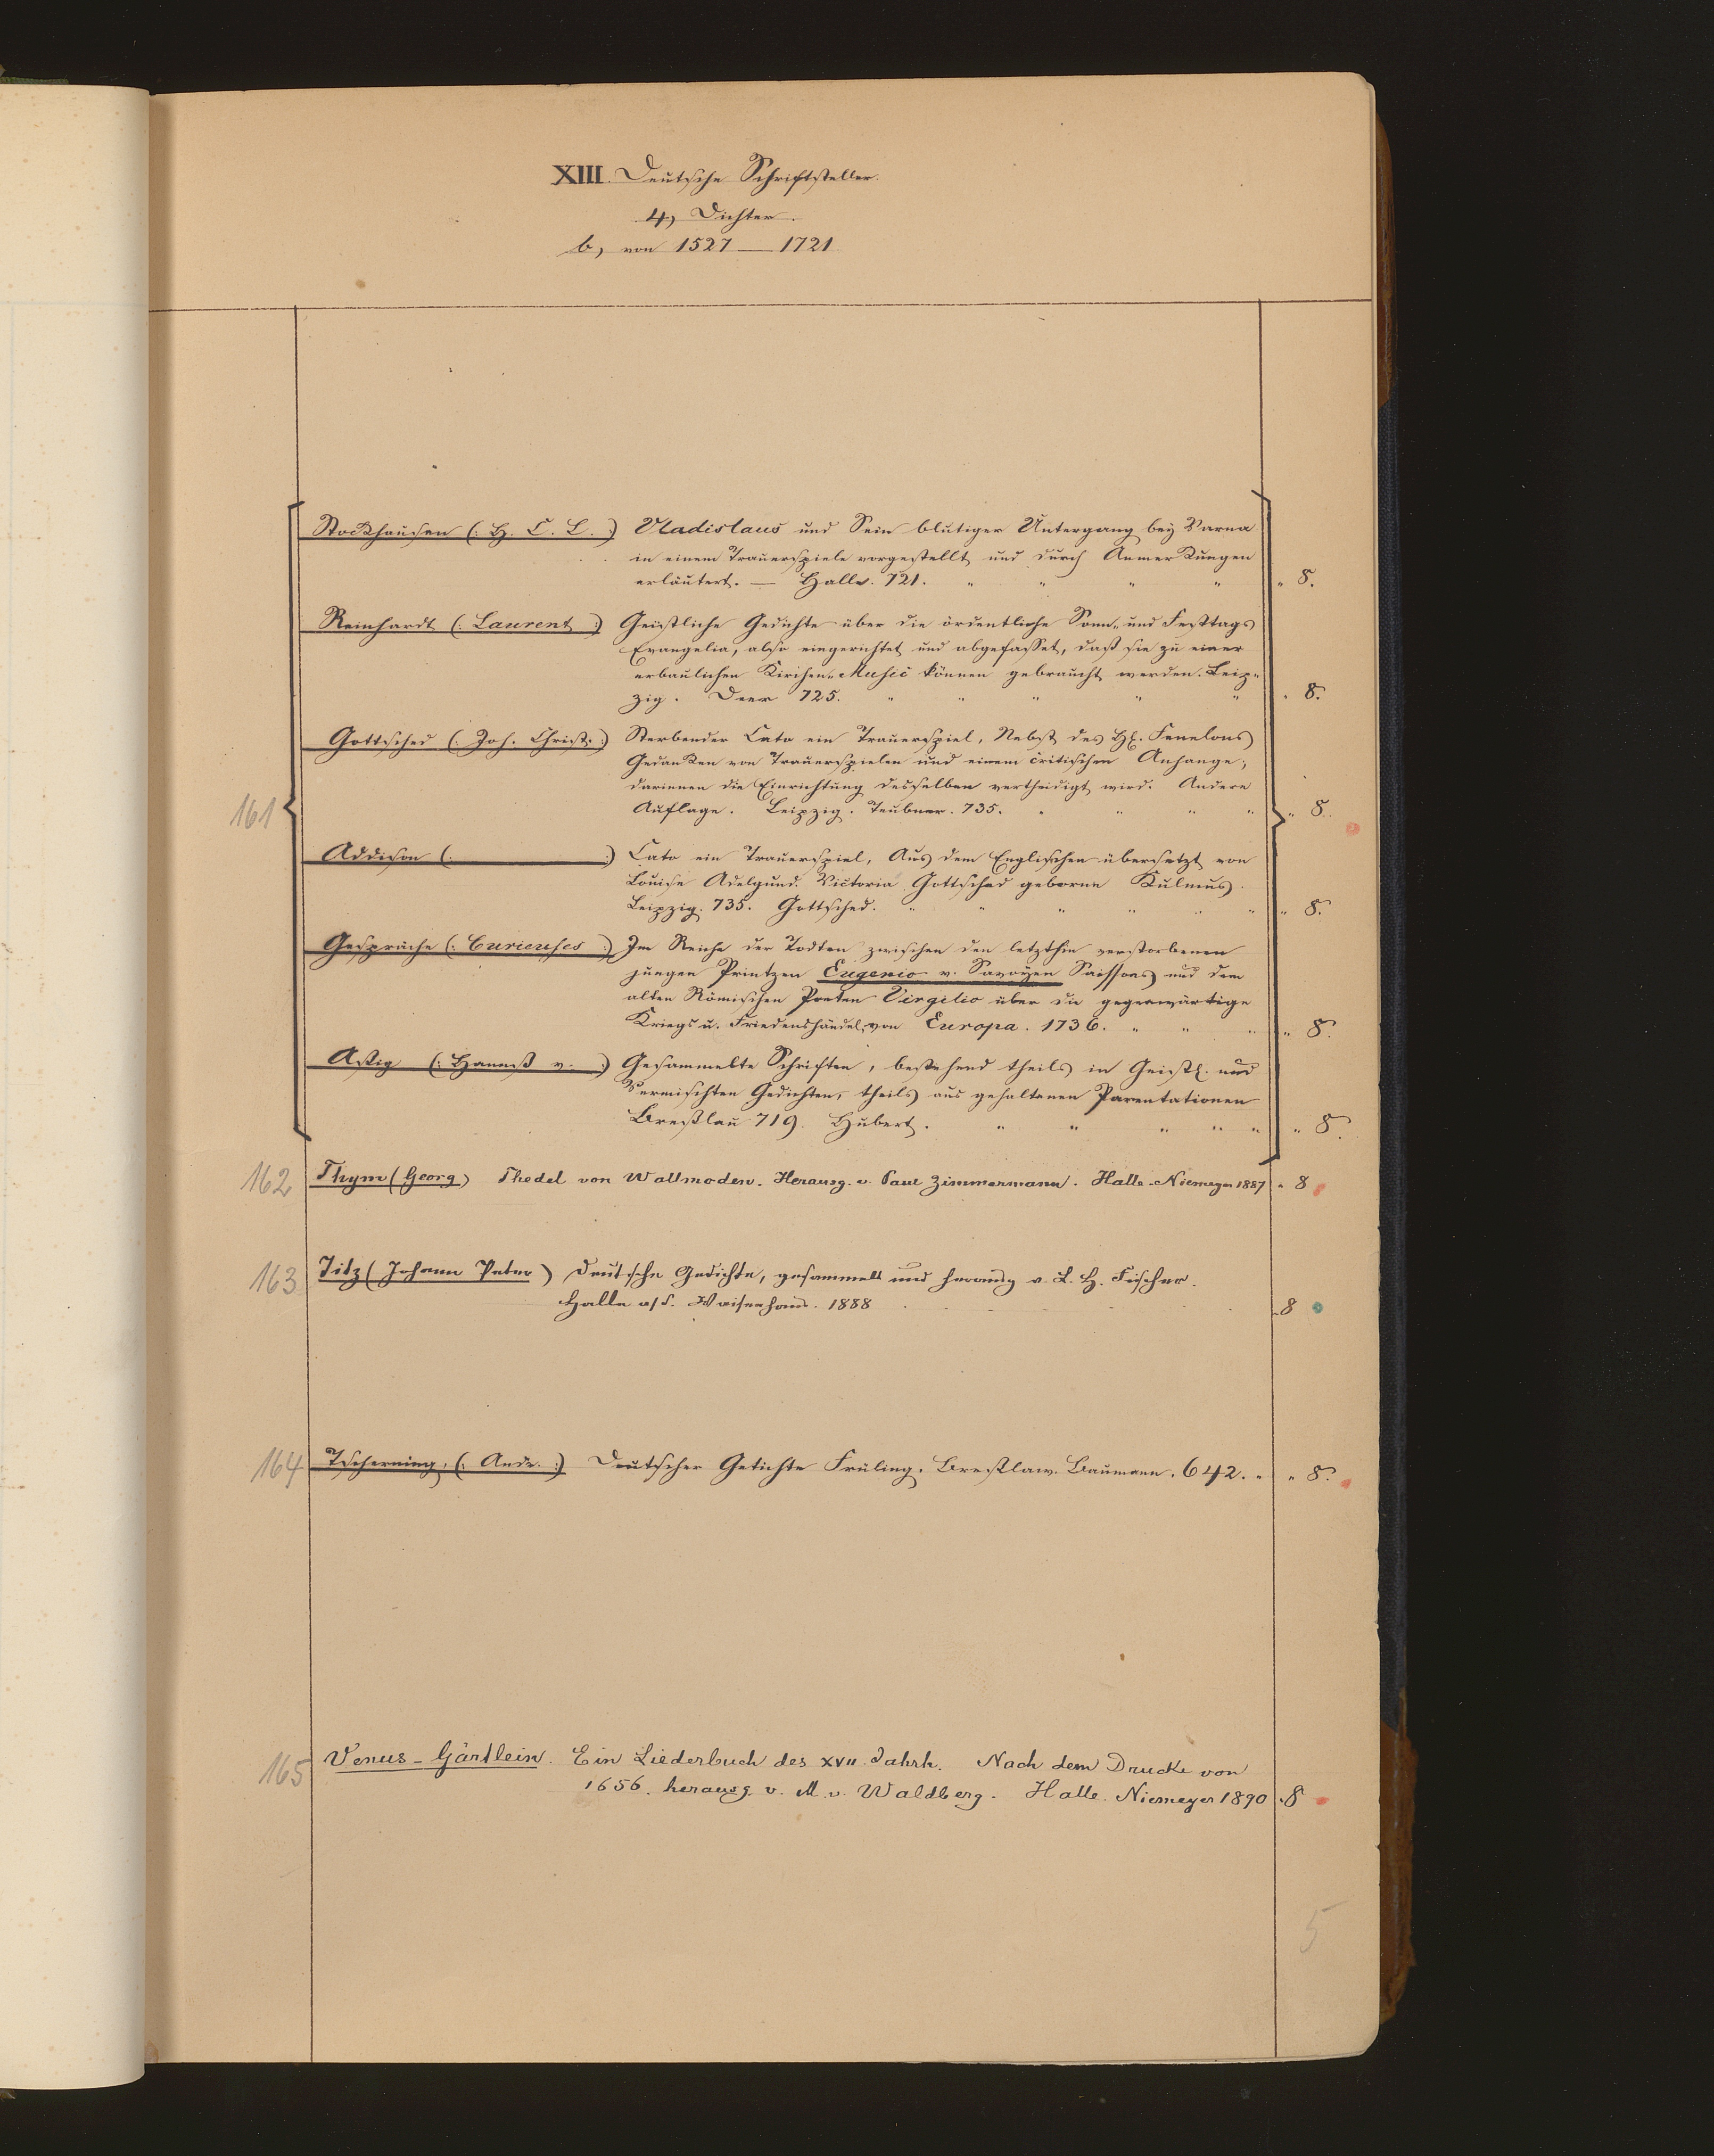 XIII. Deutsche Schriftsteller.
4, Dichter.
b, von 1527 — 1721
161
Stockhausen (: H. C. L. :) Vladislaus und Sein blutiger Untergang bey Varna
in einem Trauerspiele vorgestellt und durch Anmerkungen
erläutert. — Halle. 721. " " " " " 8.
Reinhardt (: Laurent :) Geistliche Gedichte über die ordentliche Sonn- und Festtags
Evangelia, also eingerichtet und abgefasset, daß sie zu einer
erbaulichen Kirchen-Music können gebraucht werden. Leip-
zig. Deer 725. " " " " " " 8.
Gottsched (: Joh. Christ. :) Sterbender Cato ein Trauerspiel, Nebst des H. Fenelons
Gedanken von Trauerspielen und einem critischen Anhange,
darinnen die Einrichtung desselben vertheidigt wird. Andere
Auflage. Leipzig. Teubner. 735. " " " " " 8.
Addison (: :) Cato ein Trauerspiel, Aus dem Englischen übersetzt von
Louise Adelgund. Victoria Gottsched geborne Kulmus.
Leipzig. 735. Gottsched. " " " " " " " 8.
Gespräche (: Curieuses :) Im Reiche der Todten zwischen den letzthin verstorbenen
jungen Printzen Eugenio v. Savoyen Saissons und dem
alten Römischen Poeten Virgilio über die gegenwärtige
Kriegs u. Friedenshändel, von Europa. 1736. " " " " 8.
Aßig (: Hannß v. :) Gesammelte Schriften, bestehend theils in Geistl. und
Vermischten Gedichten, theils aus gehaltenen Parentationen
Breßlau 719. Hubert. " " " " " " 8.
162 Thym (Georg) Thedel von Wallmoden. Herausg. v. Paul Zimmermann. Halle-Niemeyer 1887 " 8
163 Titz (Johann Peter) Deutsche Gedichte, gesammelt und herausg v. L. H. Fischer.
Halle a/S. Waisenhaus. 1888 . . . . . . " 8
164 Tscherning, (: Andr. :) Deutscher Getichte Früling. Breßlaw. Baumann. 642. " " 8.
165 Venus-Gärtlein. Ein Liederbuch des XVII. Jahrh. Nach dem Drucke von
1656. herausg. v. M. v. Waldberg. Halle. Niemeyer 1890 " 8
5